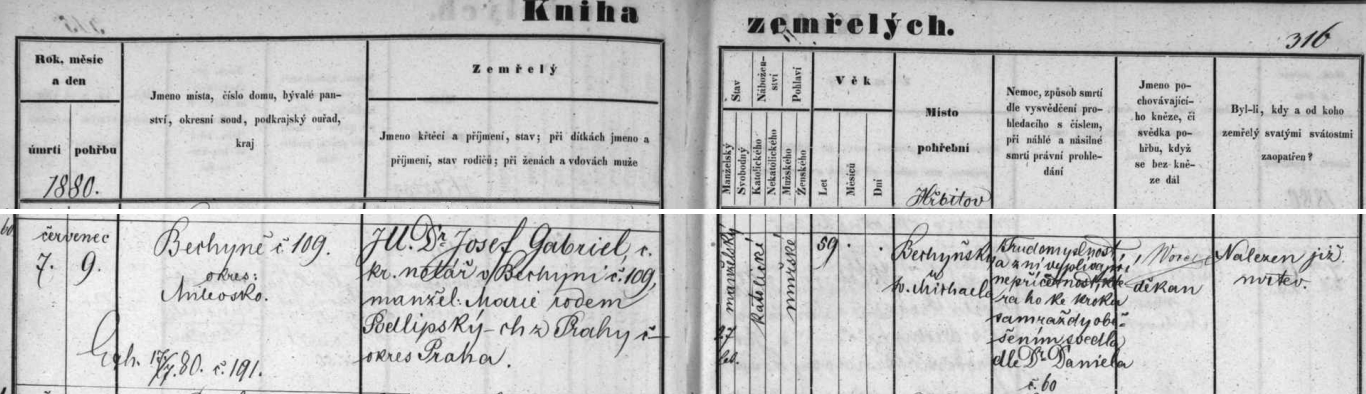 Kniha zemřelých.
316
Rok, měsíc
a den
úmrtí pohřbu
1880.
Jmeno místa, číslo domu, bývalé pan-
ství, okresní soud, podkrajský ouřad,
kraj
Zemřelý
Jmeno křtěcí a příjmení, stav; při dítkách jmeno a
příjmení, stav rodičů; při ženách a vdovách muže
Stav
Manželský
Svobodný
Nábožen-
ství
Katolického
Nekatolického
Pohlaví
Mužského
Ženského
Věk
Let
Měsíců
Dní
Místo
pohřební
Hřbitov
Nemoc, způsob smrtí
dle vysvědčení pro-
hledacího s číslem,
při náhlé a násilné
smrti právní prohle-
dání
Jmeno po-
chovávající-
ho kněze, či
svědka po-
hřbu, když
se bez kně-
ze dál
Byl-li, kdy a od koho
zemřelý svatými svátostmi
zaopatřen?
60
červenec
7. 9.
Bechyně č 109.
okres:
Milevsko.
Exh. 17/7. 80. č. 191.
JU. Dr. Josef Gabriel, c.
kr. notář v Bechyni č. 109,
manžel Marie rodem
Podlipský-ch z Prahy č –
okres Praha.
manželský
katolické
mužské
59 . .
Bechyňský
sv. Michaela
trudomyslnost
a z ní vyplývající
nepříčetnost
ra ho ke kroku
samraždy obě-
šením svedla
dle Dr. Daniela
č. 60
děkan
Nalezen již
mrtev.